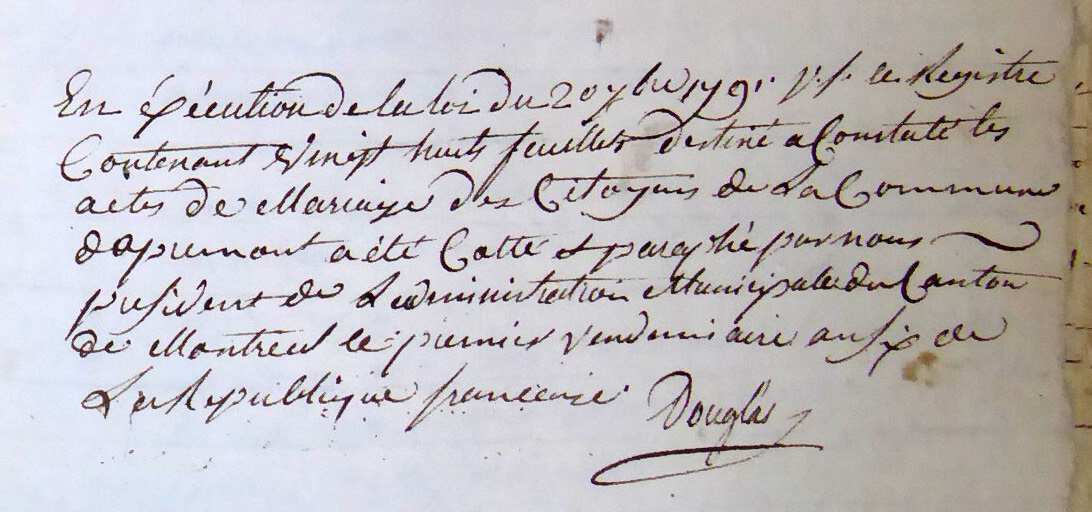 En Exécution de la loi du 20 7bre 1791 V. S. le Registre
Contenant Vingt huit feuillets destiné a Constaté les
actes de Mariage des Citoyens de La Commune
dapremont a été Cotté et paraphé par nous
président de Ladministration Municipalle du Canton
de Montreal le premier Vendemiaire an Six de
La Republique francaise Douglas